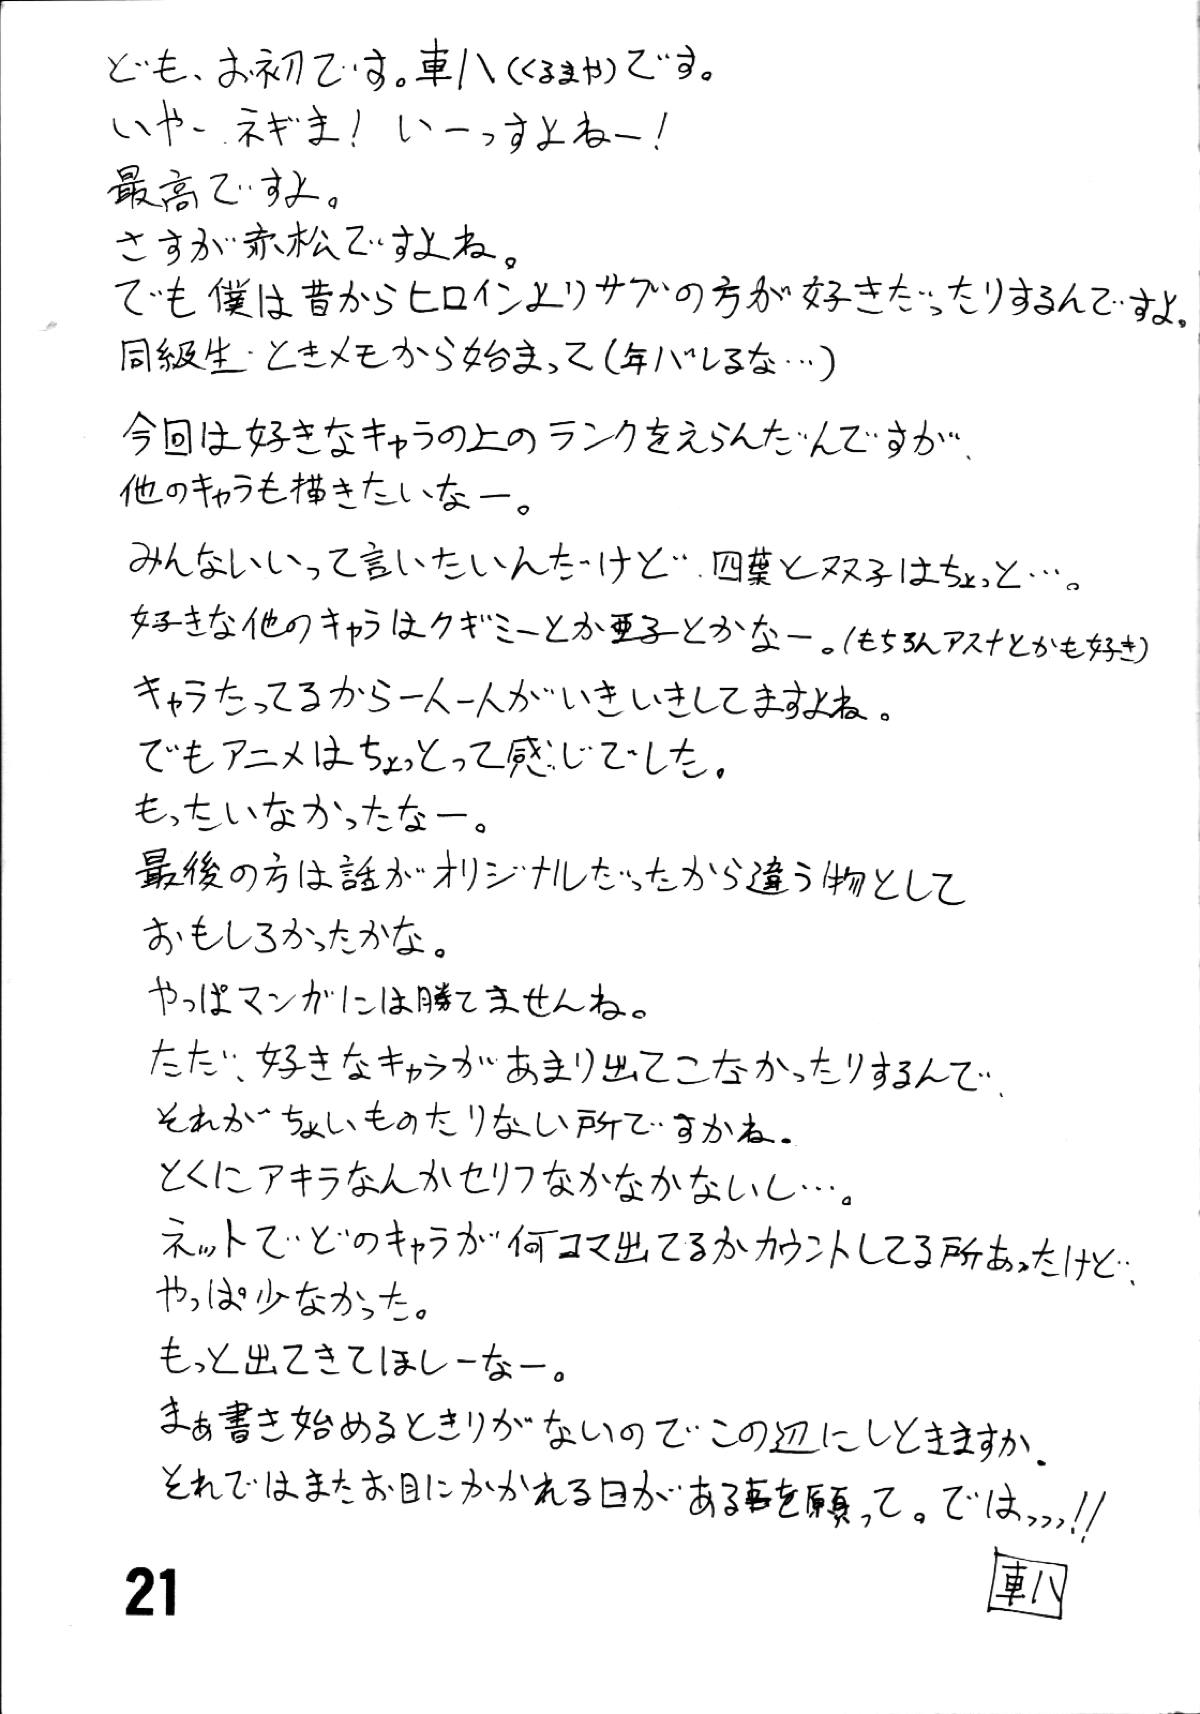 ども、お初です。車八(くるまや)です。
いやー、ネギま! いーっすよねー!
最高ですよ。
さすが赤松ですよね。
でも僕は昔からヒロインよりサブの方が好きだったりするんですよ。
同級生・ときメモから始まって(年バレるな…)
今回は好きなキャラの上のランクをえらんだんですが、
他のキャラも描きたいなー。
みんないいって言いたいんだけど、四葉と双子はちょっと…。
好きな他のキャラはクギミーとか亜子とかなー。(もちろんアスナとかも好き)
キャラたってるから一人一人がいきいきしてますよね。
でもアニメはちょっとって感じでした。
もったいなかったなー。
最後の方は話がオリジナルだったから違う物として
おもしろかったかな。
やっぱマンガには勝てませんね。
ただ、好きなキャラがあまり出てこなかったりするんで、
それがちょいものたりない所ですかね.
とくにアキラなんかセリフなかなかないし…。
ネットでどのキャラが何コマ出てるかカウントしてる所あったけど、
やっぱ少なかった。
もっと出てきてほしーなー。
まぁ書き始めるときりがないのでこの辺にしときますか.
それではまたお目にかかれる日がある事を願って。ではっっっ!!
車八
21